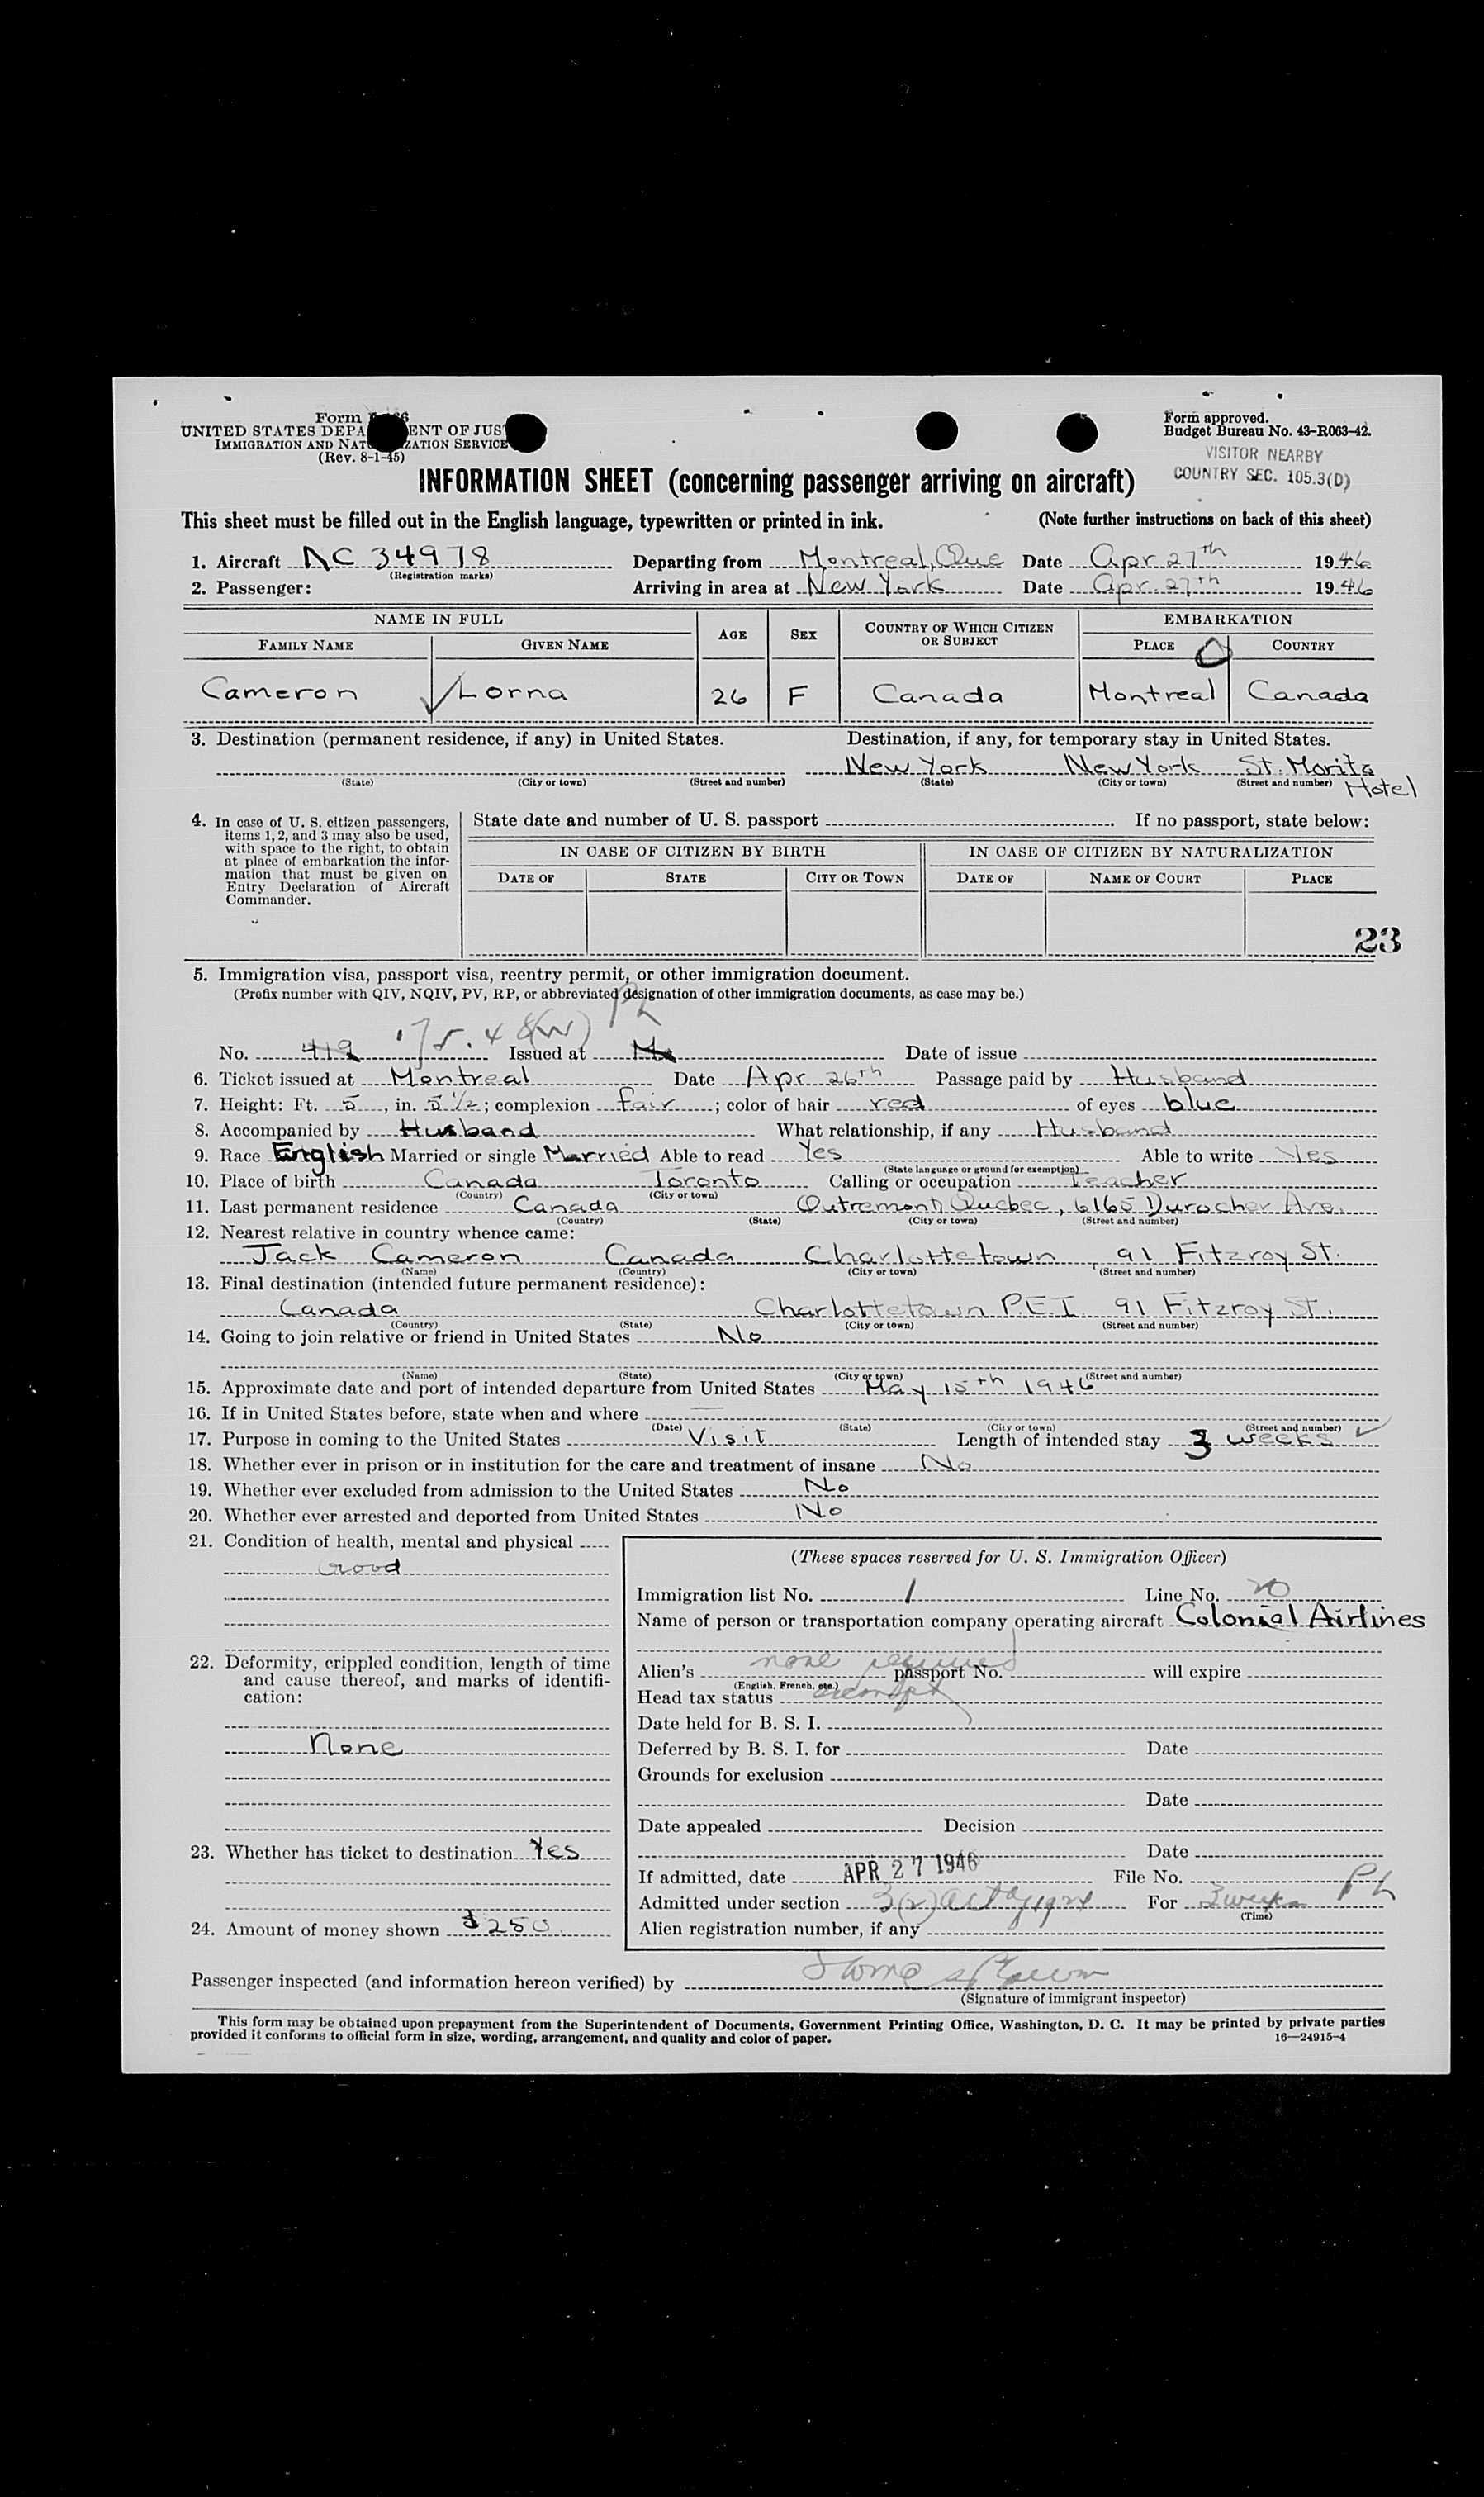 Form
UNITED STATES DEPA ENT OF JUS
IMMIGRATION AND NAT ZATION SERVICE
(Rev. 8-1-45)
Form approved.
Budget Bureau No. 43-R063-42.
VISITOR NEARBY
COUNTRY SEC. 105.3(D)
INFORMATION SHEET (concerning passenger arriving on aircraft)
This sheet must be filled out in the English language, typewritten or printed in ink. (Note further instructions on back of this sheet)
1. Aircraft NC 34978 Departing from Montreal, Que Date Apr. 27th 1946
(Registration marks)
2. Passenger: Arriving in area at New York Date Apr. 27th 1946
NAME IN FULL AGE SEX COUNTRY OF WHICH CITIZEN OR SUBJECT EMBARKATION
FAMILY NAME GIVEN NAME PLACE COUNTRY
Cameron Lorna 26 F Canada Montreal Canada
3. Destination (permanent residence, if any) in United States. Destination, if any, for temporary stay in United States.
New York New York St. Moritz Hotel
(State) (City or town) (Street and number) (State) (City or town) (Street and number)
4. In case of U. S. citizen passengers, items 1, 2, and 3 may also be used, with space to the right, to obtain at place of embarkation the information that must be given on Entry Declaration of Aircraft Commander.
State date and number of U. S. passport If no passport, state below:
IN CASE OF CITIZEN BY BIRTH IN CASE OF CITIZEN BY NATURALIZATION
DATE OF STATE CITY OR TOWN DATE OF NAME OF COURT PLACE
23
5. Immigration visa, passport visa, reentry permit, or other immigration document.
(Prefix number with QIV, NQIV, PV, RP, or abbreviated designation of other immigration documents, as case may be.)
No. 419 Issued at Date of issue
6. Ticket issued at Montreal Date Apr 26th Passage paid by Husband
7. Height: Ft. 5, in. 5 1/2; complexion fair; color of hair red of eyes blue
8. Accompanied by Husband What relationship, if any Husband
9. Race English Married or single Married Able to read Yes Able to write Yes
(State language or ground for exemption)
10. Place of birth Canada Toronto Calling or occupation Teacher
(Country) (City or town)
11. Last permanent residence Canada Outremont, Quebec, 6165 Durocher Ave.
(Country) (State) (City or town) (Street and number)
12. Nearest relative in country whence came:
Jack Cameron Canada Charlottetown 91 Fitzroy St.
(Name) (Country) (City or town) (Street and number)
13. Final destination (intended future permanent residence):
Canada Charlottetown P.E.I. 91 Fitzroy St.
(Country) (State) (City or town) (Street and number)
14. Going to join relative or friend in United States No
(Name) (State) (City or town) (Street and number)
15. Approximate date and port of intended departure from United States May 15th 1946
16. If in United States before, state when and where —
(Date) (State) (City or town) (Street and number)
17. Purpose in coming to the United States Visit Length of intended stay 3 weeks
18. Whether ever in prison or in institution for the care and treatment of insane No
19. Whether ever excluded from admission to the United States No
20. Whether ever arrested and deported from United States No
21. Condition of health, mental and physical
Good
22. Deformity, crippled condition, length of time and cause thereof, and marks of identification:
None
23. Whether has ticket to destination Yes
24. Amount of money shown $250
(These spaces reserved for U. S. Immigration Officer)
Immigration list No. 1 Line No.
Name of person or transportation company operating aircraft Colonial Airlines
Alien's none required passport No. will expire
(English, French, etc.)
Head tax status exempt
Date held for B. S. I.
Deferred by B. S. I. for Date
Grounds for exclusion
Date
Date appealed Decision
Date
If admitted, date APR 27 1946 File No.
Admitted under section 3(2) act of 1924 For 3 weeks
(Time)
Alien registration number, if any
Passenger inspected (and information hereon verified) by
(Signature of immigrant inspector)
This form may be obtained upon prepayment from the Superintendent of Documents, Government Printing Office, Washington, D. C. It may be printed by private parties
provided it conforms to official form in size, wording, arrangement, and quality and color of paper. 16—24915-4